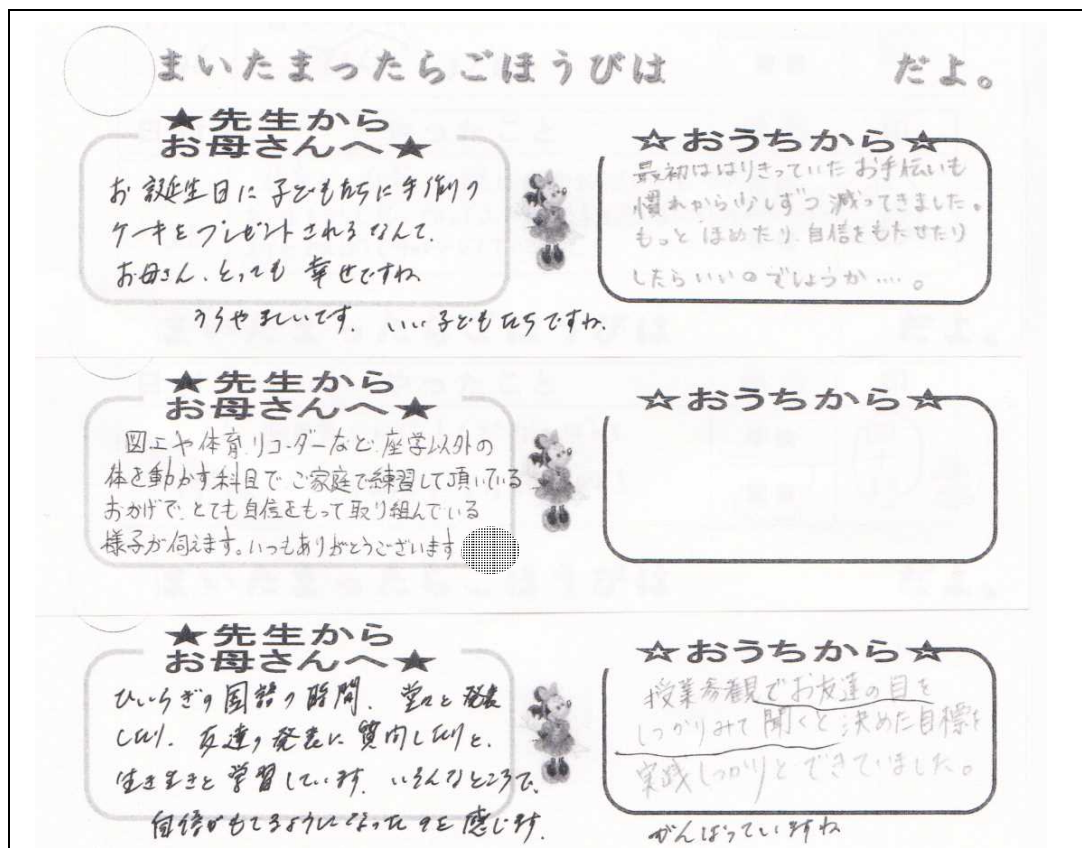 まいたまったらごほうびは　　　　だよ。
★先生から
お母さんへ★
お誕生日に子どもたちに手作りの
ケーキをプレゼントされるなんて、
お母さん、とっても幸せですね。
うらやましいです。いい子どもたちですね。
☆おうちから☆
最初ははりきっていたお手伝いも
慣れから少しずつ減ってきました。
もっとほめたり、自信をもたせたり
したらいいのでしょうか….。
★先生から
お母さんへ★
図工や体育、リコーダーなど、座学以外の
体を動かす科目で、ご家庭で練習して頂いている
おかげで、とても自信をもって取り組んでいる
様子が伺えます。いつもありがとうございます
☆おうちから☆
★先生から
お母さんへ★
ひいらぎの国語の時間、堂々と発表
したり、友達の発表に質問したりと、
生き生きと学習しています。いろんなところで、
自信がもてるようになったのを感じます。
☆おうちから☆
授業参観でお友達の目を
しっかりみて聞くと決めた目標を
実践しっかりとできていました。
がんばっていますね